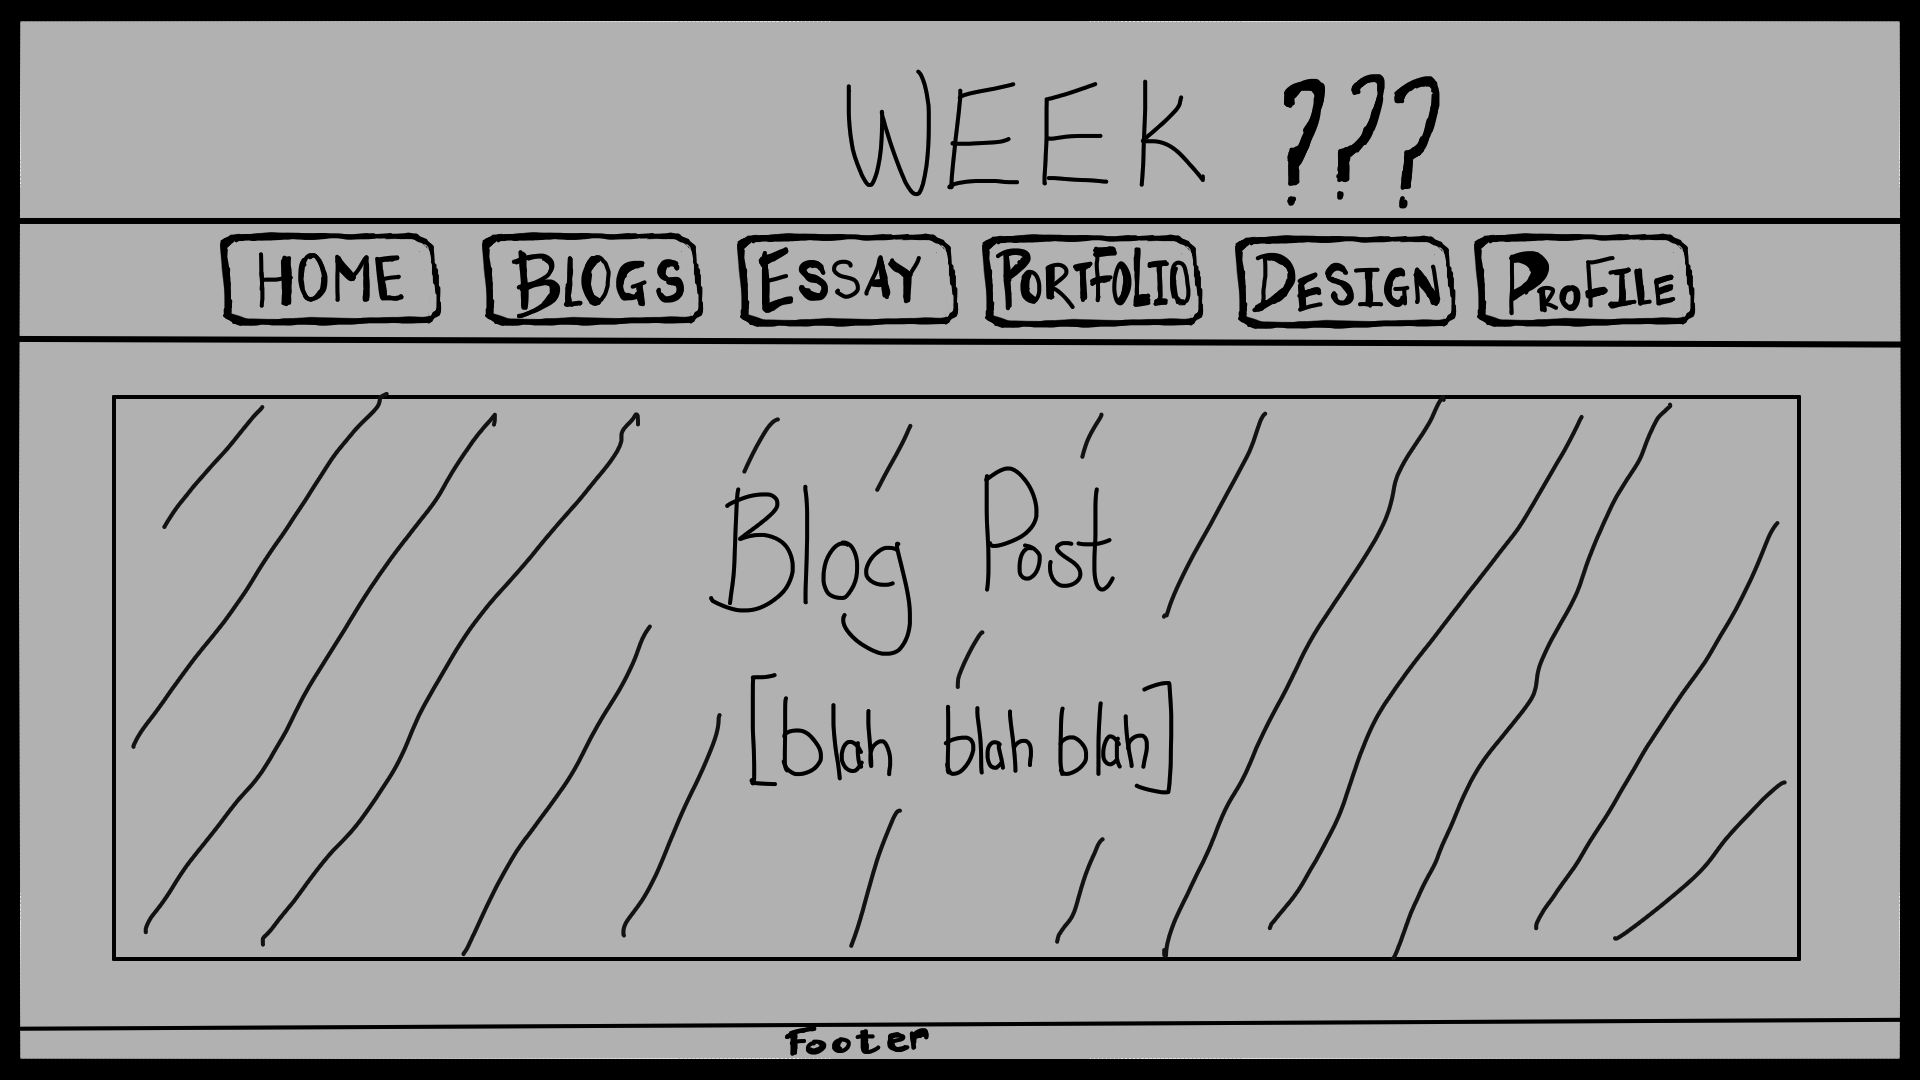 WEEK ???
HOME BLOGS ESSAY PORTFOLIO DESIGN PROFILE
Blog Post
[blah blah blah]
Footer